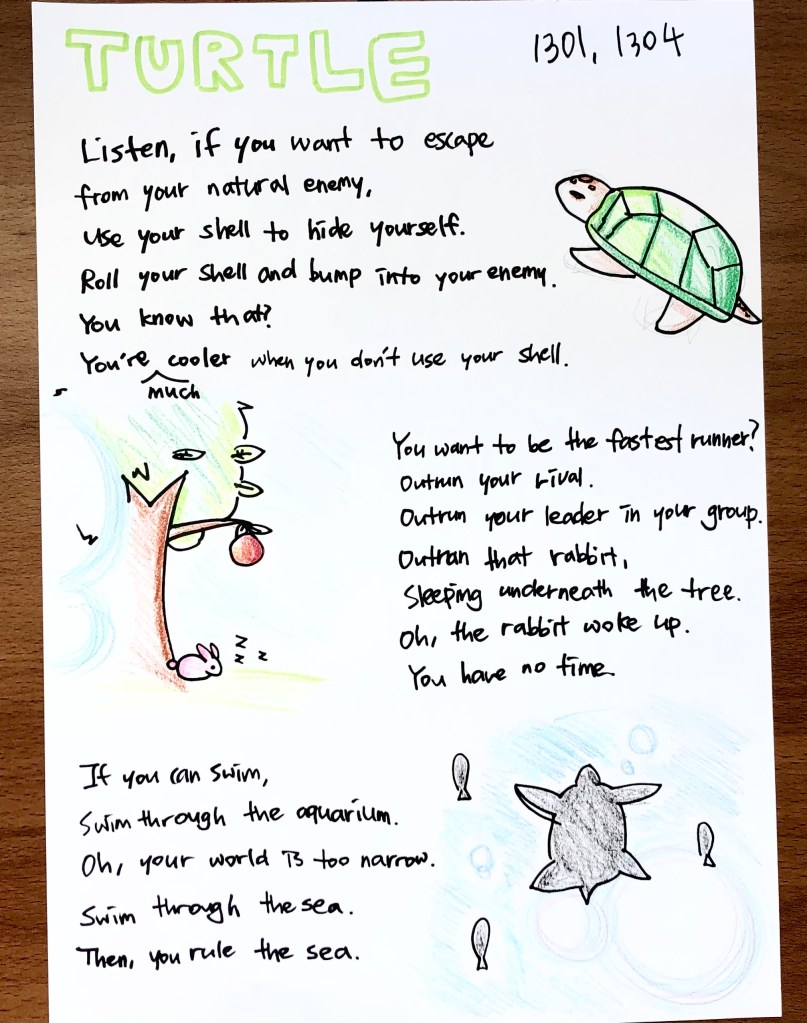 TURTLE
1301, 1304
Listen, if you want to escape
from your natural enemy,
Use your shell to hide yourself.
Roll your shell and bump into your enemy.
You know that?
You're much cooler when you don't use your shell.
You want to be the fastest runner?
Outrun your rival.
Outrun your leader in your group.
Outran that rabbit,
Sleeping underneath the tree.
Oh, the rabbit woke up.
You have no time.
z z z
If you can swim,
Swim through the aquarium.
Oh, your world is too narrow.
Swim through the sea.
Then, you rule the sea.